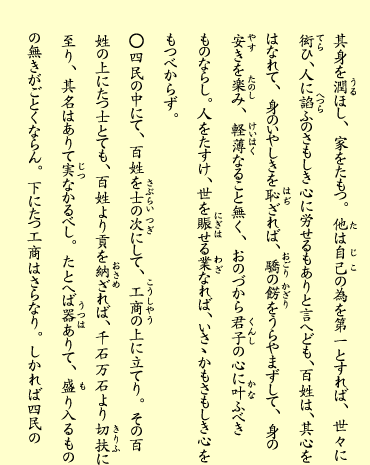 其身を潤ほし、家をたもつ。他は自己の為を第一とすれば、世々に
衒ひ、人に諂ふのさもしき心に労せるもありと言へども、百姓は、其心を
はなれて、身のいやしきを恥ざれば、驕の餝をうらやまずして、身の
安きを楽み、軽薄なること無く、おのづから君子の心に叶ふべき
ものならし。人をたすけ、世を賑せる業なれば、いさゝかもさもしき心を
もつべからず。
〇四民の中にて、百姓を士の次にして、工商の上に立てり。その百
姓の上にたつ士とても、百姓より貢を納ざれば、千石万石より切扶に
至り、其名はありて実なかるべし。たとへば器ありて、盛り入るもの
の無きがごとくならん。下にたつ工商はさらなり。しかれば四民の